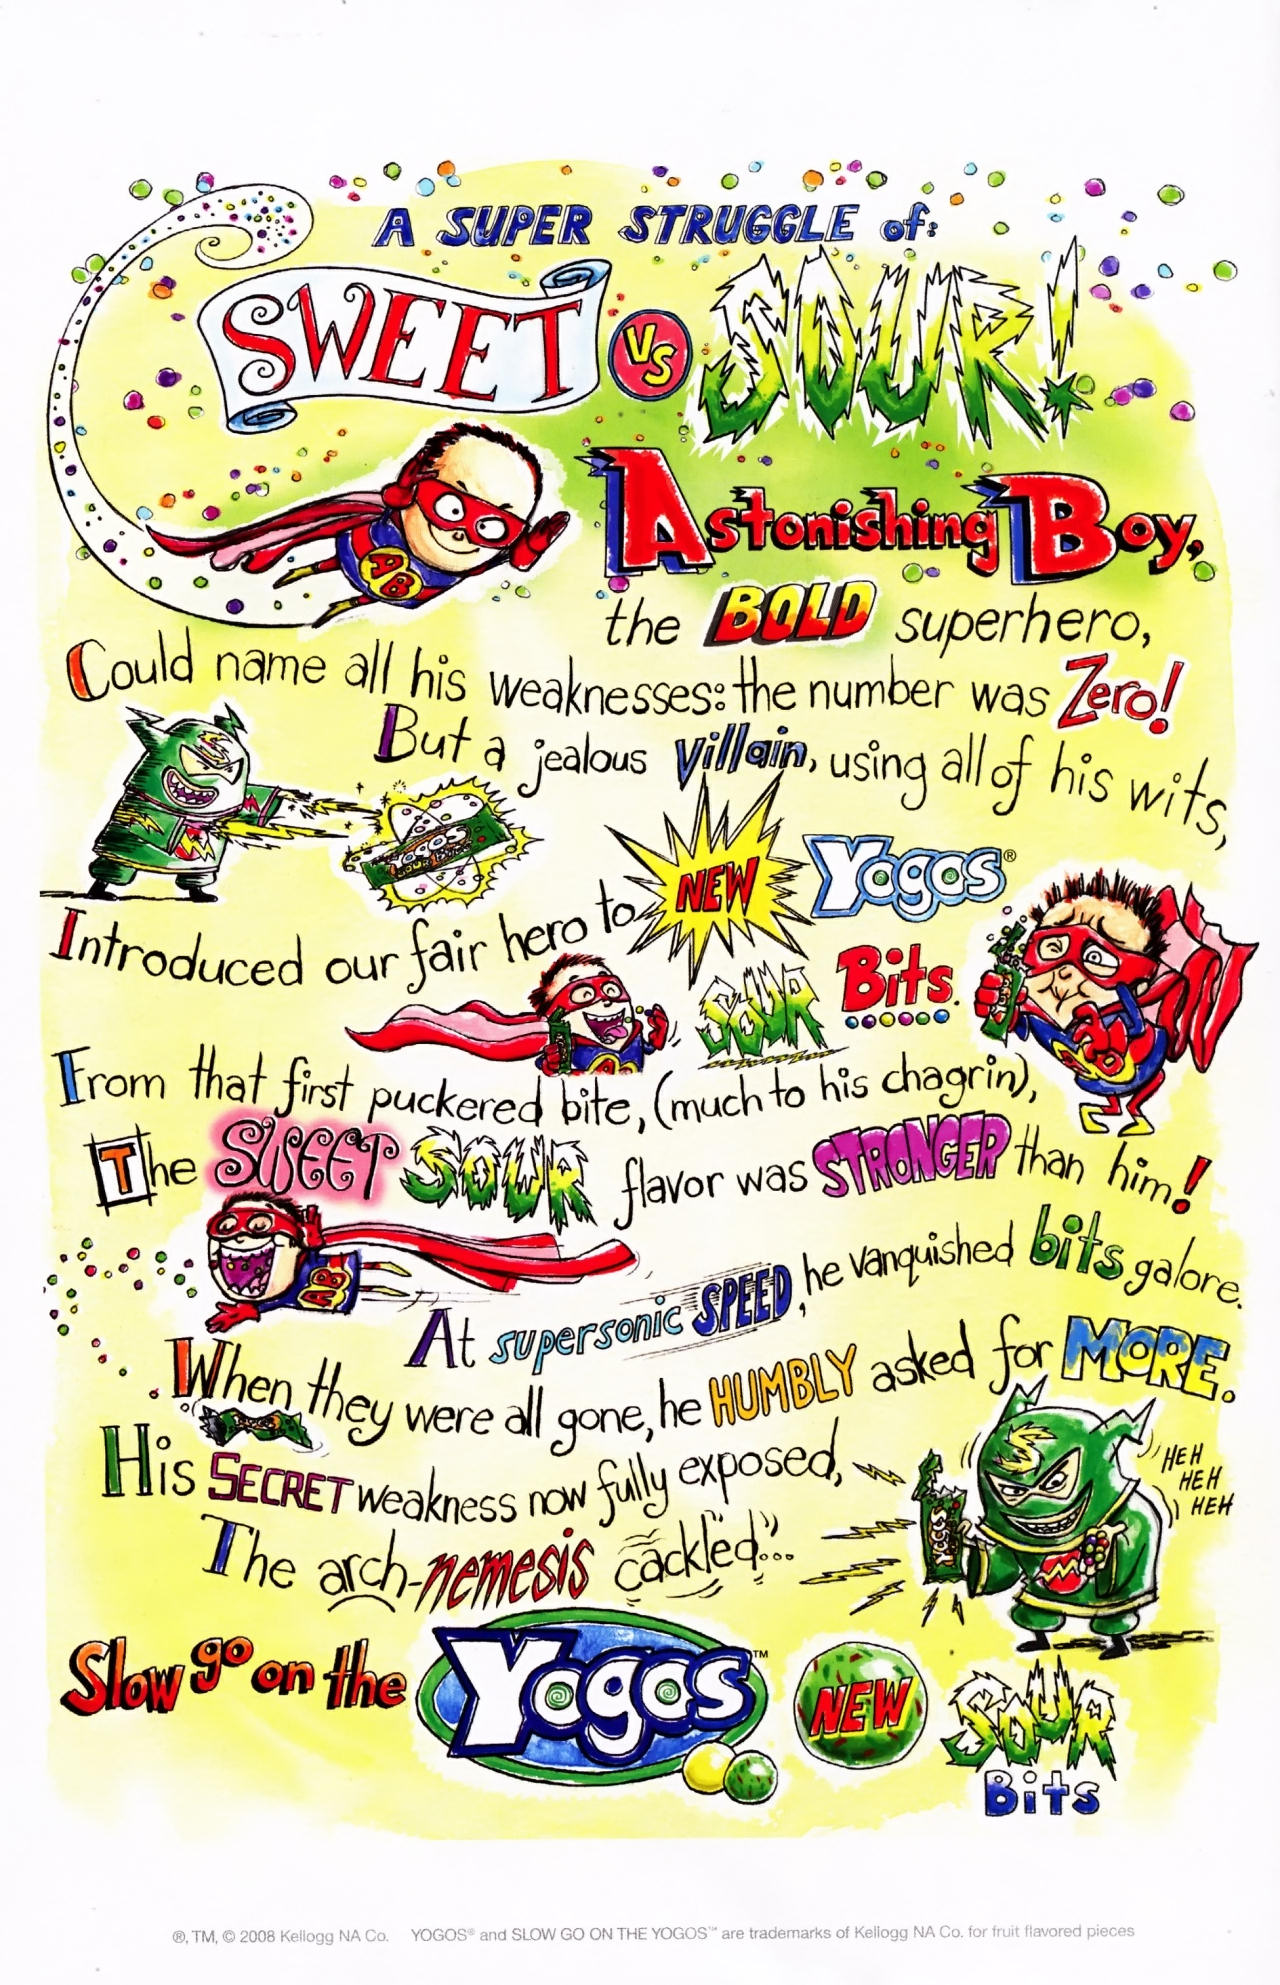 A SUPER STRUGGLE of:
SWEET VS SOUR!
Astonishing Boy,
the BOLD superhero,
Could name all his weaknesses: the number was Zero!
But a jealous Villain, using all of his wits,
Introduced our fair hero to NEW Yogos®
SOUR Bits.
From that first puckered bite, (much to his chagrin),
The SWEET SOUR flavor was STRONGER than him!
At supersonic SPEED, he vanquished bits galore.
When they were all gone, he HUMBLY asked for MORE.
His SECRET weakness now fully exposed,
HEH
HEH
HEH
The arch-nemesis cackled...
Slow go on the Yogos™ NEW SOUR
Bits
AB
AB
®, TM, © 2008 Kellogg NA Co. YOGOS® and SLOW GO ON THE YOGOS™ are trademarks of Kellogg NA Co. for fruit flavored pieces